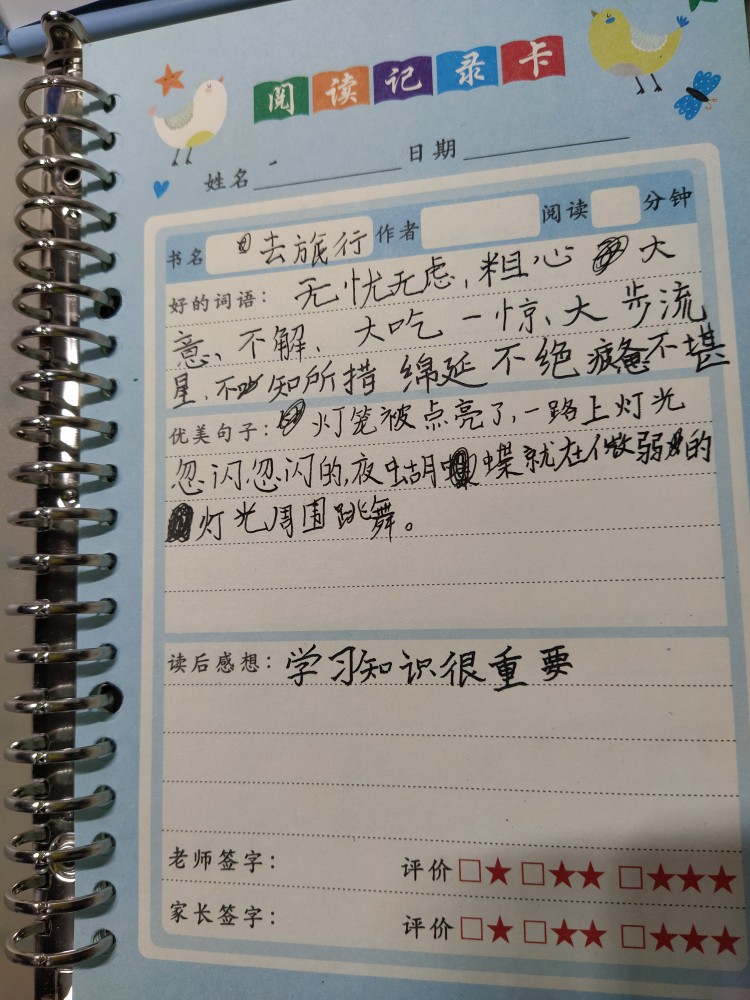 阅读记录卡
姓名 日期
书名 去旅行 作者 阅读 分钟
好的词语：无忧无虑，粗心 大
意、不解、大吃一惊、大步流
星、不知所措 绵延不绝 疲惫不堪
优美句子：灯笼被点亮了，一路上灯光
忽闪忽闪的，夜蝴蝶就在微弱的
灯光周围跳舞。
读后感想：学习知识很重要
老师签字： 评价 □★ □★★ □★★★
家长签字： 评价 □★ □★★ □★★★